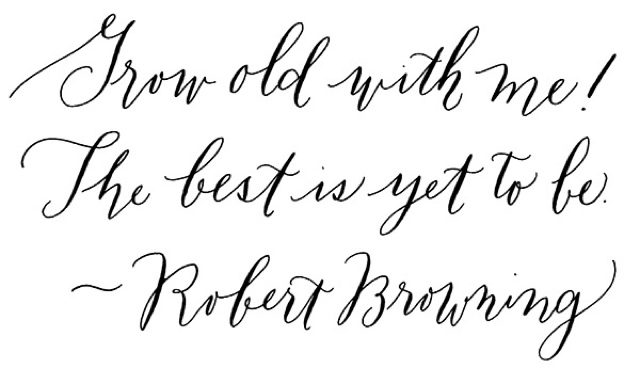 Grow old with me!
The best is yet to be.
~ Robert Browning